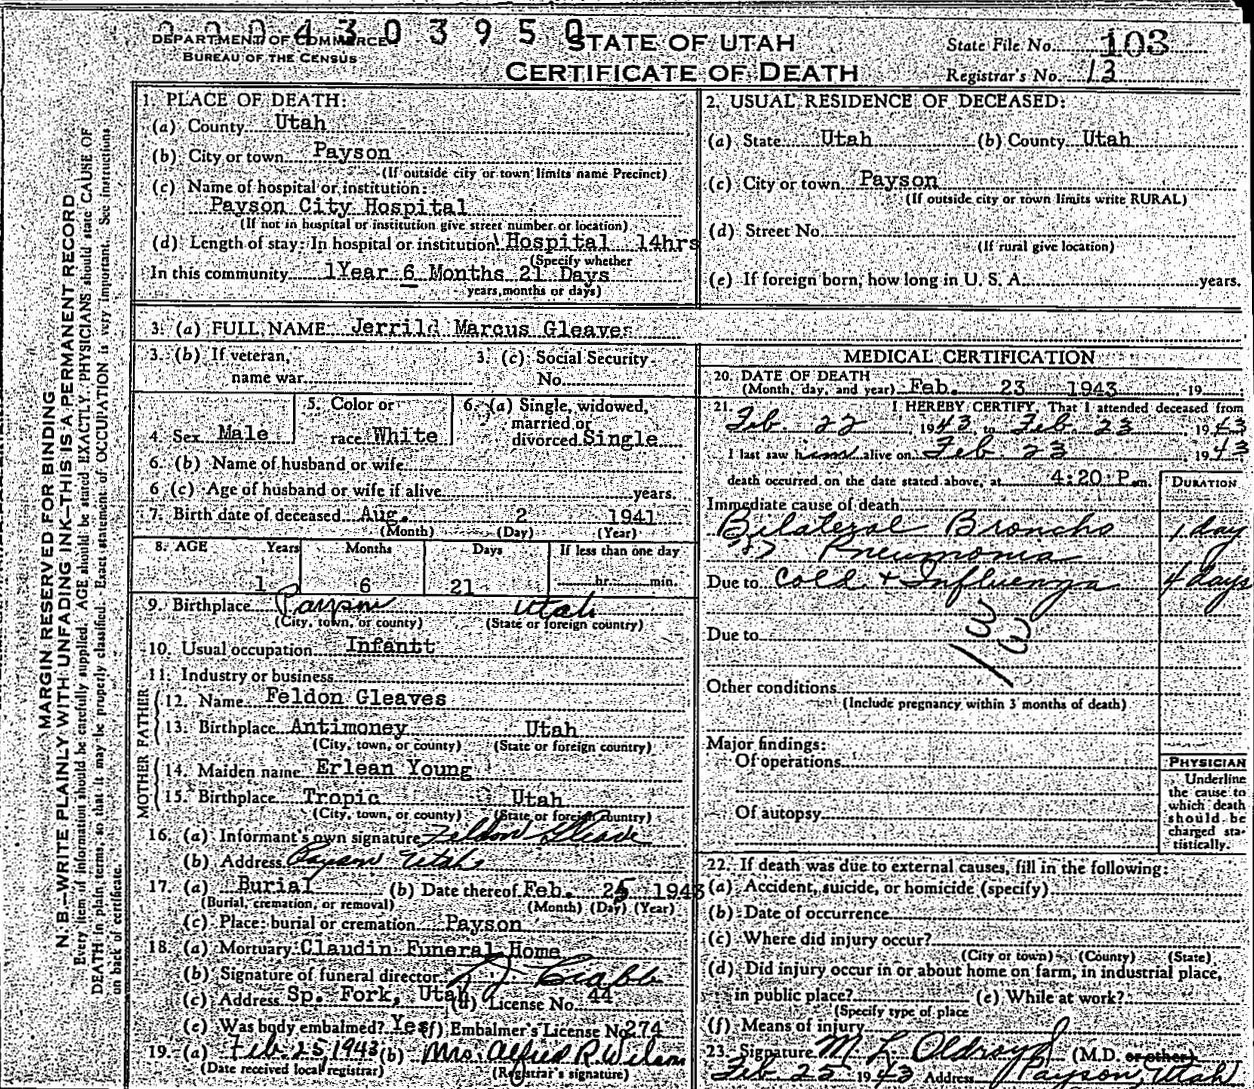 0 0 0 4 3 0 3 9 5 0
DEPARTMENT OF COMMERCE
BUREAU OF THE CENSUS
STATE OF UTAH
CERTIFICATE OF DEATH
State File No. 103
Registrar's No. 13
MARGIN RESERVED FOR BINDING
N. B.—WRITE PLAINLY WITH UNFADING INK—THIS IS A PERMANENT RECORD
Every item of information should be carefully supplied. AGE should be stated EXACTLY. PHYSICIANS should state CAUSE OF
DEATH in plain terms, so that it may be properly classified. Exact statement of OCCUPATION is very important. See instructions
on back of certificate.
1. PLACE OF DEATH:
(a) County Utah
(b) City or town Payson
(If outside city or town limits name Precinct)
(c) Name of hospital or institution:
Payson City Hospital
(If not in hospital or institution give street number or location)
(d) Length of stay: In hospital or institution Hospital 14hrs
(Specify whether
In this community 1Year 6 Months 21 Days
years, months or days)
2. USUAL RESIDENCE OF DECEASED:
(a) State Utah (b) County Utah
(c) City or town Payson
(If outside city or town limits write RURAL)
(d) Street No.
(If rural give location)
(e) If foreign born, how long in U. S. A. years.
3. (a) FULL NAME Jerrild Marcus Gleaves
3. (b) If veteran, name war
3. (c) Social Security No.
4. Sex Male
5. Color or race White
6. (a) Single, widowed, married or divorced Single
6. (b) Name of husband or wife
6 (c) Age of husband or wife if alive years.
7. Birth date of deceased Aug. 2 1941
(Month) (Day) (Year)
8. AGE Years Months Days If less than one day
1 6 21 hr. min.
9. Birthplace Payson Utah
(City, town, or county) (State or foreign country)
10. Usual occupation Infantt
11. Industry or business
FATHER
12. Name Feldon Gleaves
13. Birthplace Antimoney Utah
(City, town, or county) (State or foreign country)
MOTHER
14. Maiden name Erlean Young
15. Birthplace Tropic Utah
(City, town, or county) (State or foreign country)
16. (a) Informant's own signature Feldon Gleave
(b) Address Payson Utah
17. (a) Burial (b) Date thereof Feb. 25 1943
(Burial, cremation, or removal) (Month) (Day) (Year)
(c) Place: burial or cremation Payson
18. (a) Mortuary Claudin Funeral Home
(b) Signature of funeral director
(c) Address Sp. Fork, Utah (d) License No. 44
(e) Was body embalmed? Yes (f) Embalmer's License No 274
19. (a) Feb. 25, 1943 (b) Mrs. Alfred R. Wilson
(Date received local registrar) (Registrar's signature)
MEDICAL CERTIFICATION
20. DATE OF DEATH
(Month, day, and year) Feb. 23 1943 19
21. I HEREBY CERTIFY, That I attended deceased from
Feb. 22 1943 to Feb 23 1943
I last saw him alive on Feb. 23 1943
death occurred on the date stated above, at 4:20 P.m.
DURATION
Immediate cause of death
Bilateral Broncho 1 day
Pneumonia
Due to Cold + Influenza 4 days
33
Due to
Other conditions
(Include pregnancy within 3 months of death)
Major findings:
Of operations
Of autopsy
PHYSICIAN
Underline
the cause to
which death
should be
charged sta-
tistically.
22. If death was due to external causes, fill in the following:
(a) Accident, suicide, or homicide (specify)
(b) Date of occurrence
(c) Where did injury occur?
(City or town) (County) (State)
(d) Did injury occur in or about home on farm, in industrial place,
in public place? (e) While at work?
(Specify type of place
(f) Means of injury
23. Signature M L Oldroyd (M.D. or other)
Feb 25 1943 Address Payson, Utah